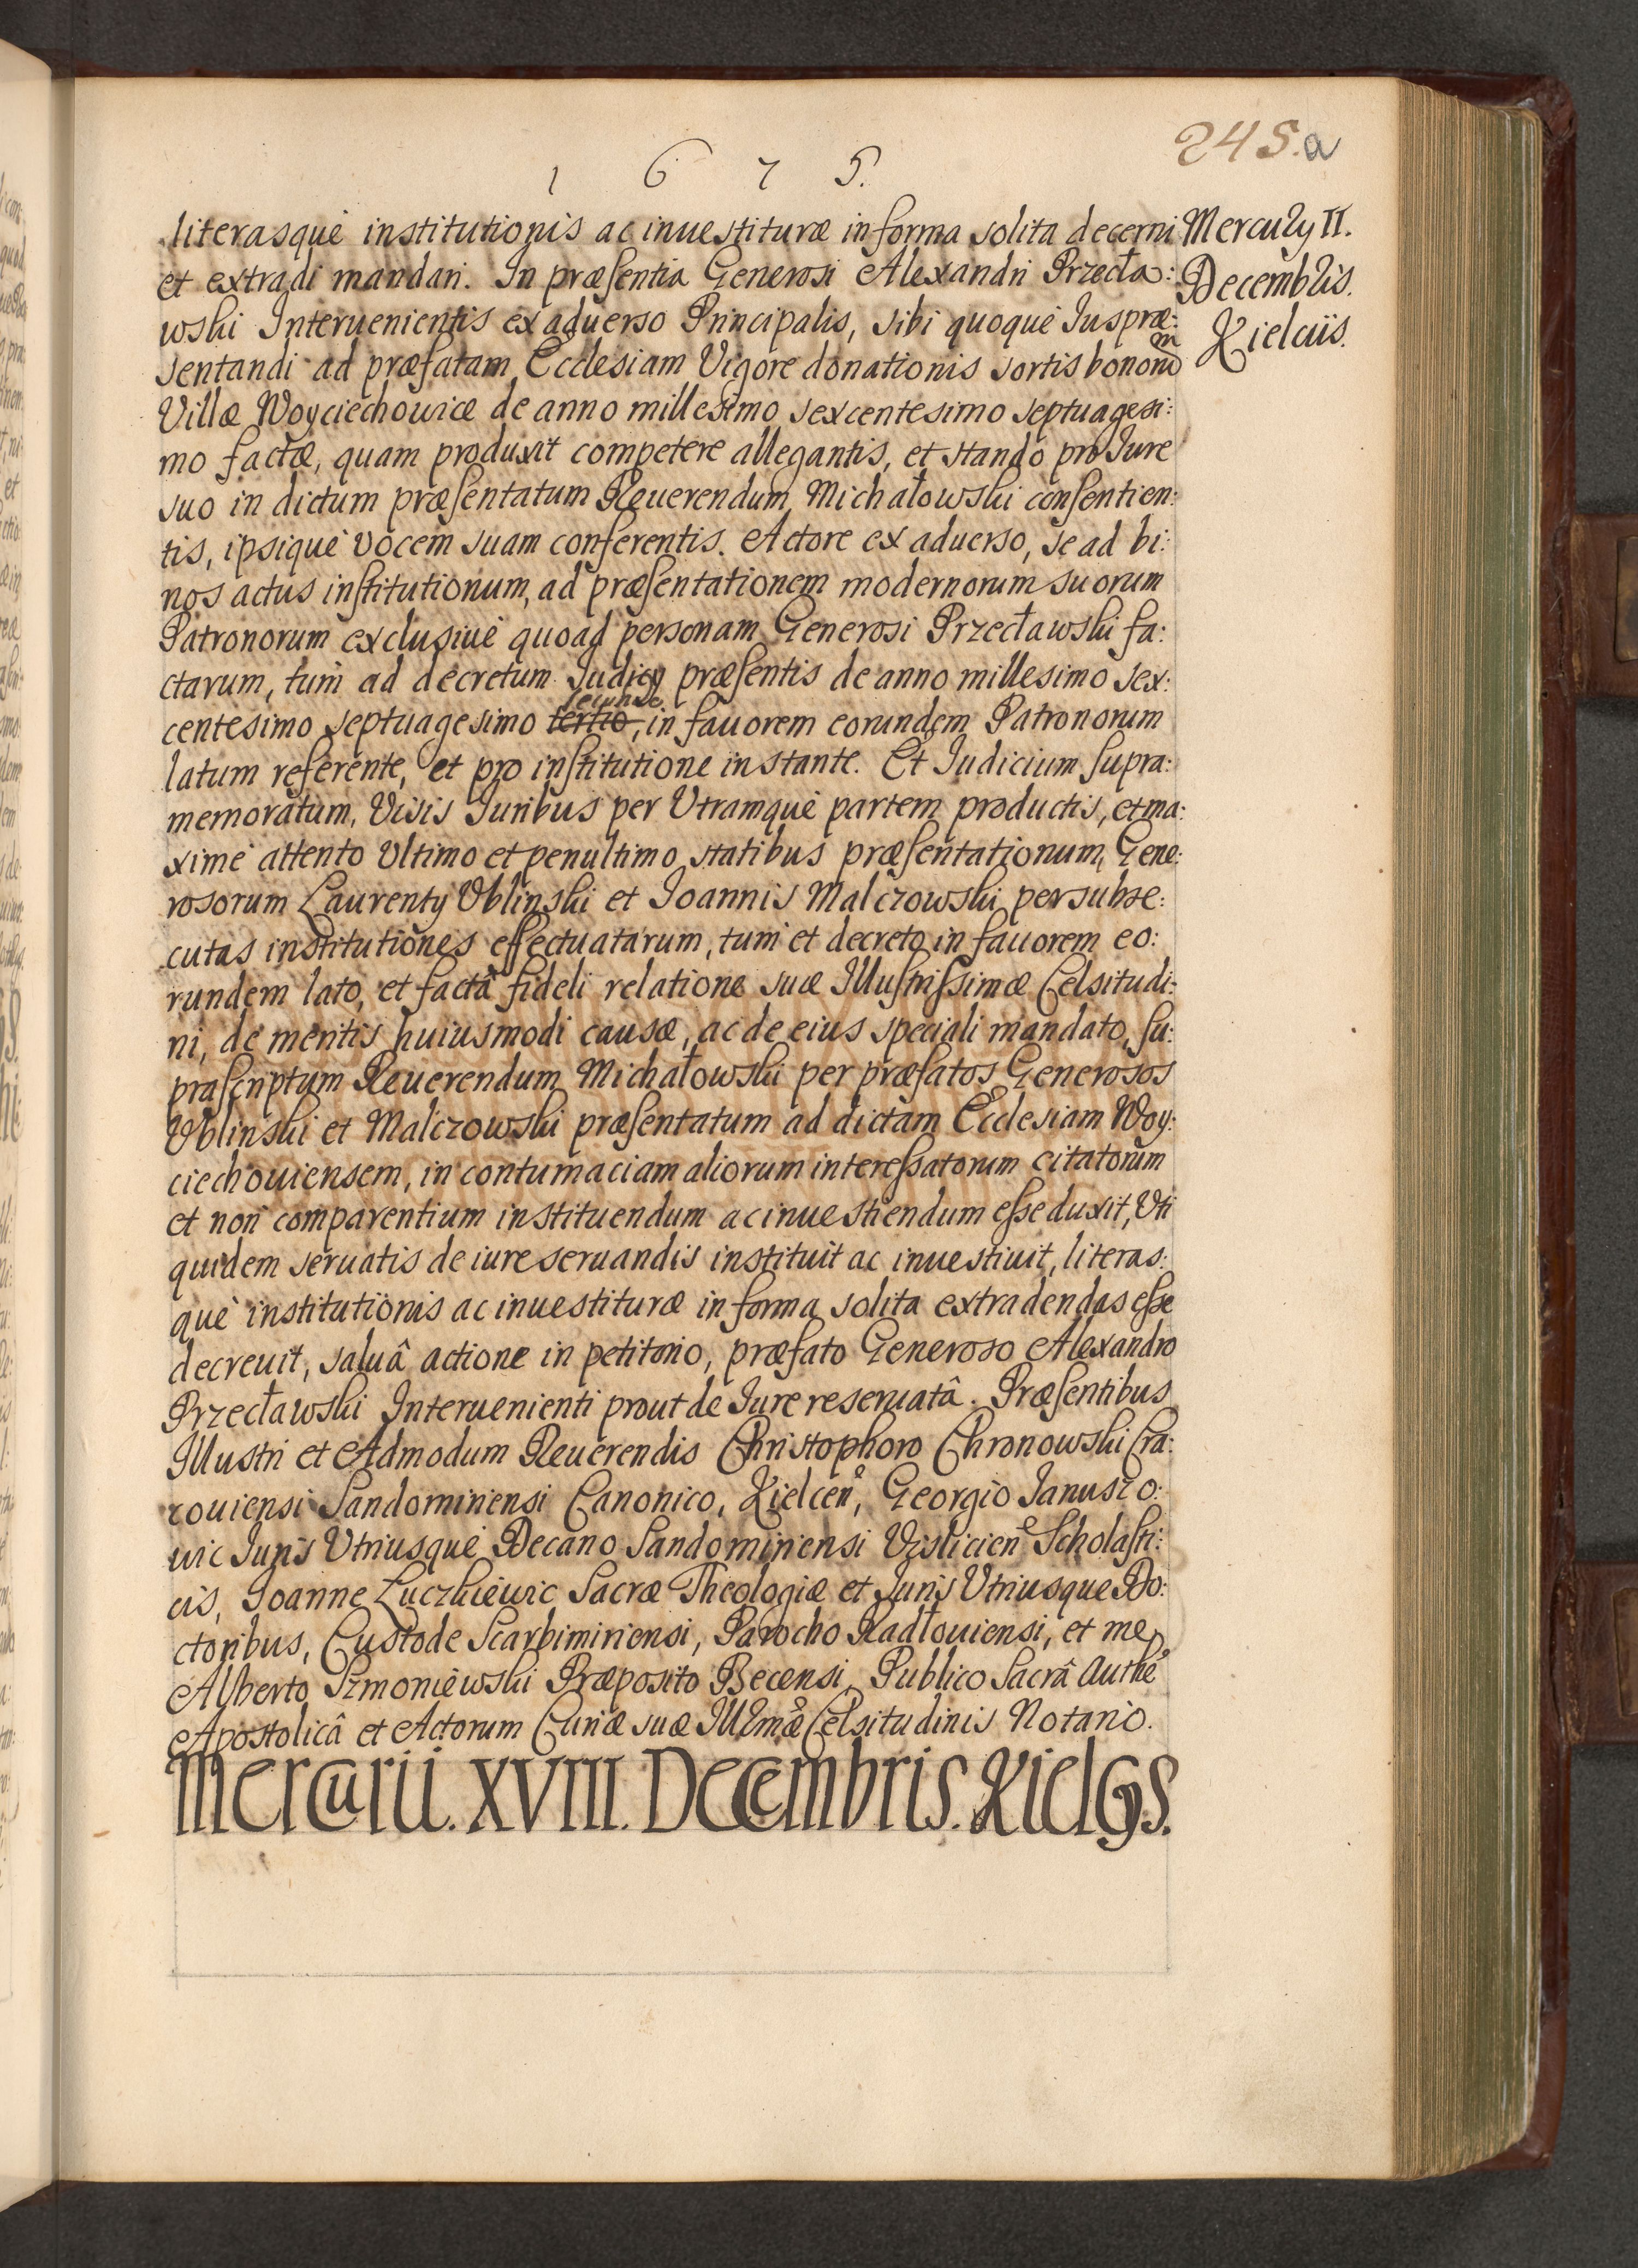 245.a
1 6 7 5.
literasquè institutionis ac inuestituræ in forma solita decerni
et extradi mandari. In præsentia Generosi Alexandri Przecła:
wski Interuenientis ex aduerso Principalis, sibi quoquè Jus præ:
sentandi ad præfatam Ecclesiam Vigore donationis sortis bonorũ
Villæ Woyciechowice de anno millesimo sexcentesimo septuagesi:
mo factæ, quam produxit competere allegantis, et stando pro Jure
suo in dictum præsentatum Reuerendum Michałowski consentien:
tis, ipsiquè vocem suam conferentis. Actore ex aduerso, se ad bi:
nos actus institutionum, ad præsentationem modernorum suorum
Patronorum exclusiuè quoad personam Generosi Przecławski fa:
ctarum, tum ad decretum Judicy præsentis de anno millesimo sex:
secundo
centesimo septuagesimo tertio, in fauorem eorundem Patronorum
latum referente, et pro institutione instante. Et Judicium supra:
memoratum, Visis Juribus per Vtramquè partem productis, et ma:
ximè attento Vltimo et penultimo statibus præsentationum, Gene:
rosorum Laurenty Vblinski et Joannis Malczowski per subse:
cutas institutiones effectuatarum, tum et decreto in fauorem eo:
rundem lato, et factâ fideli relatione suæ Illustrissimæ Celsitudi:
ni, de meritis huiusmodi causæ, ac de eius speciali mandato, su:
prascriptum Reuerendum Michałowski per præfatos Generosos
Vblinski et Malczowski præsentatum ad dictam Ecclesiam Woy:
ciechouiensem, in contumaciam aliorum interessatorum citatorum
et non comparentium instituendum ac inuestiendum esse duxit, Vti
quidem seruatis de iure seruandis instituit ac inuestiuit, literas:
què institutionis ac inuestituræ in forma solita extradendas esse
decreuit, saluâ actione in petitorio, præfato Generoso Alexandro
Przecławski Interuenienti prout de Jure reseruatâ. Præsentibus
Illustri et Admodum Reuerendis Christophoro Chronowski Cra:
couiensi Sandomiriensi Canonico, Kielceñ, Georgio Januszo:
wic Juris Vtriusquè Decano Sandomiriensi Vislicieñ Scholasti:
cis, Joanne Łuczkiewic Sacræ Theologiæ et Juris Vtriusque Do:
ctoribus, Custode Scarbimiriensi, Parocho Radłouiensi, et me
Alberto Szmoniewski Præposito Becensi, Publico Sacrâ Authẽ
Apostolicâ et Actorum Curiæ suæ Illmæ Celsitudinis Notario.
Mercurii. XVIII. Decembris. Kielcys.
Mercury II.
Decembris.
Kielciis.